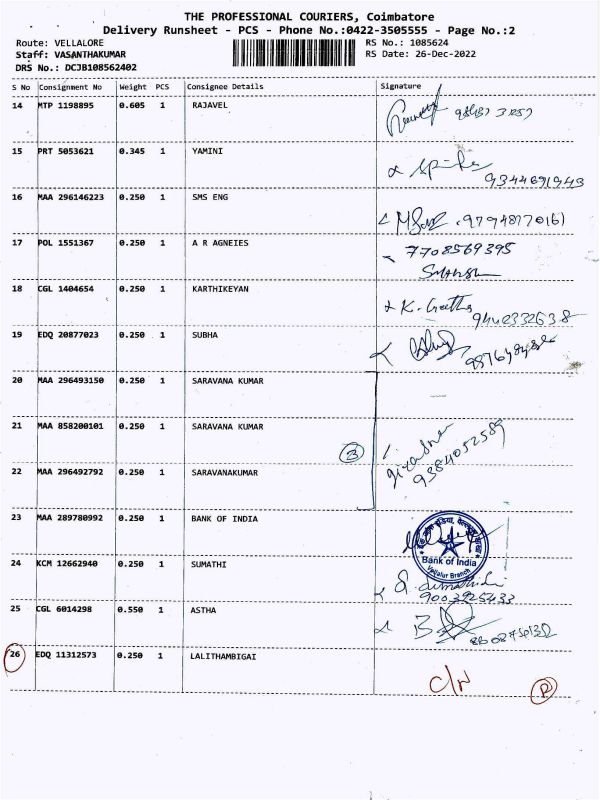 THE PROFESSIONAL COURIERS, Coimbatore
Delivery Runsheet - PCS - Phone No.:0422-3505555 - Page No.:2
Route: VELLALORE
Staff: VASANTHAKUMAR
DRS No.: DCJB108562402
RS No.: 1085624
RS Date: 26-Dec-2022
S No Consignment No Weight PCS Consignee Details Signature
14 MTP 1198895 0.605 1 RAJAVEL
15 PRT 5053621 0.345 1 YAMINI
9344691943
16 MAA 296146223 0.250 1 SMS ENG
9794817016
17 POL 1551367 0.250 1 A R AGNEIES 7708569395
18 CGL 1404654 0.250 1 KARTHIKEYAN K. Geetha
9442332638
19 EDQ 20877023 0.250 1 SUBHA
20 MAA 296493150 0.250 1 SARAVANA KUMAR
21 MAA 858200101 0.250 1 SARAVANA KUMAR
3
9384052589
22 MAA 296492792 0.250 1 SARAVANAKUMAR
23 MAA 289780992 0.250 1 BANK OF INDIA
Bank of India
Vellalur Branch
24 KCM 12662940 0.250 1 SUMATHI
9003925433
25 CGL 6014298 0.550 1 ASTHA
26 EDQ 11312573 0.250 1 LALITHAMBIGAI
C/N
R